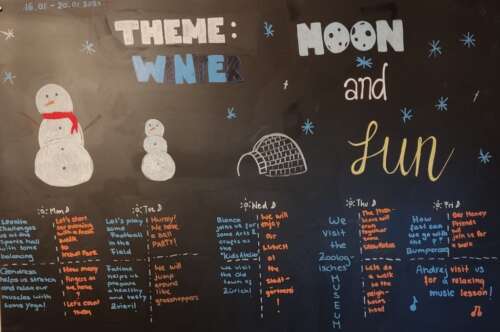 16.01 - 20.01
THEME:
WINTER
MOON
and
SUN
Mon
Tue
Wed
Thu
Fri
Challenges
us at the
Sports hall
with some
balancing
Let's start
our morning
with a
walk
to
Park
Candress
helps us stretch
and relax our
muscles with
some Yoga!
How many
fingers do
we have
?
Let's count
them
Let's play
some
Football
in the
Field
Hurray!
We have
a
PARTY!
Fatima
helps us
prepare
a healthy
and tasty
Zvieri!
We will
jump
around
like
grasshoppers
Bianca
joins us for
some Arts &
crafts at
the
Kidsatelier
We will
enjoy
our
Lunch
at
the
Stadt-
gärtnerei
We visit the
old town
of
Zürich!
We
visit
the
Zoolog-
isches
MUSEUM
The
will
our
Let's do
a walk
to the
neigh-
bours
How
fast can
we go with
the
Bumpercar
Our Honey
Friends
will
join us
for a walk
Andrej visit us
for a relaxing
music lesson!